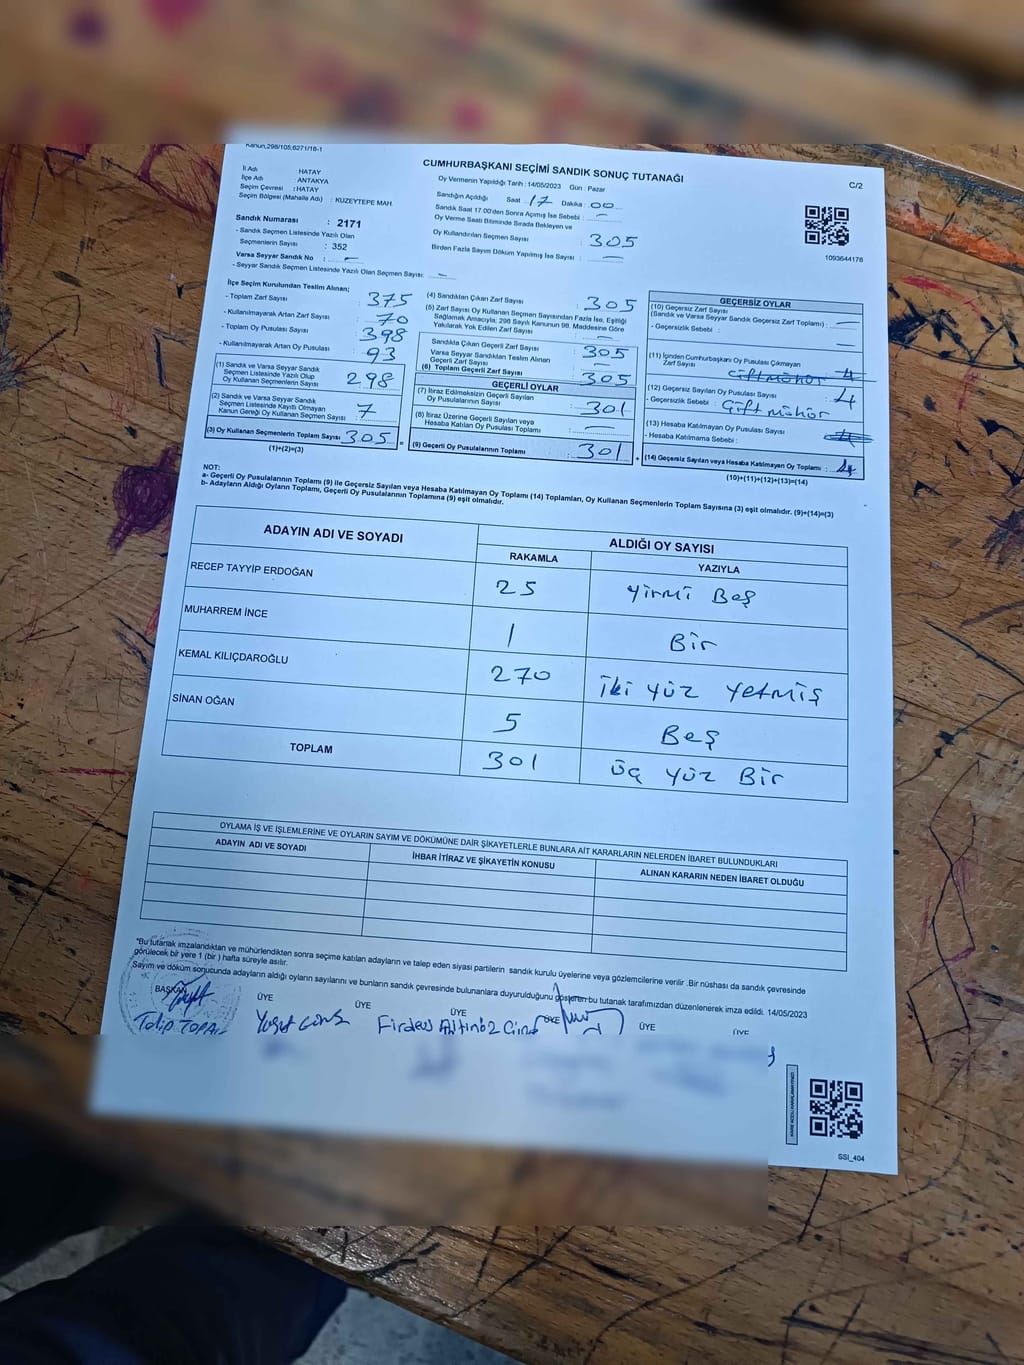 Kanun,298/105,6271/18-1
CUMHURBAŞKANI SEÇİMİ SANDIK SONUÇ TUTANAĞI
C/2
İl Adı HATAY
İlçe Adı : ANTAKYA
Seçim Çevresi : HATAY
Seçim Bölgesi (Mahalle Adı) : KUZEYTEPE MAH.
Sandık Numarası : 2171
- Sandık Seçmen Listesinde Yazılı Olan
Seçmenlerin Sayısı : 352
Varsa Seyyar Sandık No : –
- Seyyar Sandık Seçmen Listesinde Yazılı Olan Seçmen Sayısı: –
Oy Vermenin Yapıldığı Tarih : 14/05/2023 Gün : Pazar
Sandığın Açıldığı Saat 17 Dakika : 00
Sandık Saat 17.00'den Sonra Açımış İse Sebebi : –
Oy Verme Saati Bitiminde Sırada Bekleyen ve
Oy Kullandırılan Seçmen Sayısı : 305
Birden Fazla Sayım Döküm Yapılmış İse Sayısı : –
1093644178
İlçe Seçim Kurulundan Teslim Alınan;
- Toplam Zarf Sayısı : 375
- Kullanılmayarak Artan Zarf Sayısı : 70
- Toplam Oy Pusulası Sayısı : 398
- Kullanılmayarak Artan Oy Pusulası : 93
(1) Sandık ve Varsa Seyyar Sandık
Seçmen Listesinde Yazılı Olup
Oy Kullanan Seçmenlerin Sayısı : 298
(2) Sandık ve Varsa Seyyar Sandık
Seçmen Listesinde Kayıtlı Olmayan
Kanun Gereği Oy Kullanan Seçmen Sayısı : 7
(3) Oy Kullanan Seçmenlerin Toplam Sayısı : 305 =
(1)+(2)=(3)
(4) Sandıktan Çıkan Zarf Sayısı : 305
(5) Zarf Sayısı Oy Kullanan Seçmen Sayısından Fazla İse, Eşitliği
Sağlamak Amacıyla, 298 Sayılı Kanunun 98. Maddesine Göre
Yakılarak Yok Edilen Zarf Sayısı : –
Sandıkla Çıkan Geçerli Zarf Sayısı : 305
Varsa Seyyar Sandıktan Teslim Alınan
Geçerli Zarf Sayısı : –
(6) Toplam Geçerli Zarf Sayısı : 305
GEÇERLİ OYLAR
(7) İtiraz Edilmeksizin Geçerli Sayılan
Oy Pusulalarının Sayısı : 301
(8) İtiraz Üzerine Geçerli Sayılan veya
Hesaba Katılan Oy Pusulası Toplamı : –
(9) Geçerli Oy Pusulalarının Toplamı : 301 +
GEÇERSİZ OYLAR
(10) Geçersiz Zarf Sayısı
(Sandık ve Varsa Seyyar Sandık Geçersiz Zarf Toplamı) : –
- Geçersizlik Sebebi : –
(11) İçinden Cumhurbaşkanı Oy Pusulası Çıkmayan
Zarf Sayısı : Çift mühür 4
(12) Geçersiz Sayılan Oy Pusulası Sayısı : 4
- Geçersizlik Sebebi : Çift mühür
(13) Hesaba Katılmayan Oy Pusulası Sayısı
- Hesaba Katılmama Sebebi :
(14) Geçersiz Sayılan veya Hesaba Katılmayan Oy Toplamı : 4
(10)+(11)+(12)+(13)=(14)
NOT:
a- Geçerli Oy Pusulalarının Toplamı (9) ile Geçersiz Sayılan veya Hesaba Katılmayan Oy Toplamı (14) Toplamları, Oy Kullanan Seçmenlerin Toplam Sayısına (3) eşit olmalıdır. (9)+(14)=(3)
b- Adayların Aldığı Oyların Toplamı, Geçerli Oy Pusulalarının Toplamına (9) eşit olmalıdır.
ADAYIN ADI VE SOYADI ALDIĞI OY SAYISI
RAKAMLA YAZIYLA
RECEP TAYYİP ERDOĞAN 25 Yirmi Beş
MUHARREM İNCE 1 Bir
KEMAL KILIÇDAROĞLU 270 İki yüz Yetmiş
SİNAN OĞAN 5 Beş
TOPLAM 301 üç yüz Bir
OYLAMA İŞ VE İŞLEMLERİNE VE OYLARIN SAYIM VE DÖKÜMÜNE DAİR ŞİKAYETLERLE BUNLARA AİT KARARLARIN NELERDEN İBARET BULUNDUKLARI
ADAYIN ADI VE SOYADI İHBAR İTİRAZ VE ŞİKAYETİN KONUSU ALINAN KARARIN NEDEN İBARET OLDUĞU
"Bu tutanak imzalandıktan ve mühürlendikten sonra seçime katılan adayların ve talep eden siyasi partilerin sandık kurulu üyelerine veya gözlemcilerine verilir .Bir nüshası da sandık çevresinde
görülecek bir yere 1 (bir ) hafta süreyle asılır.
Sayım ve döküm sonucunda adayların aldığı oyların sayılarını ve bunların sandık çevresinde bulunanlara duyurulduğunu gösteren bu tutanak tarafımızdan düzenlenerek imza edildi. 14/05/2023
BAŞKAN ÜYE ÜYE ÜYE ÜYE ÜYE ÜYE
SSI_404